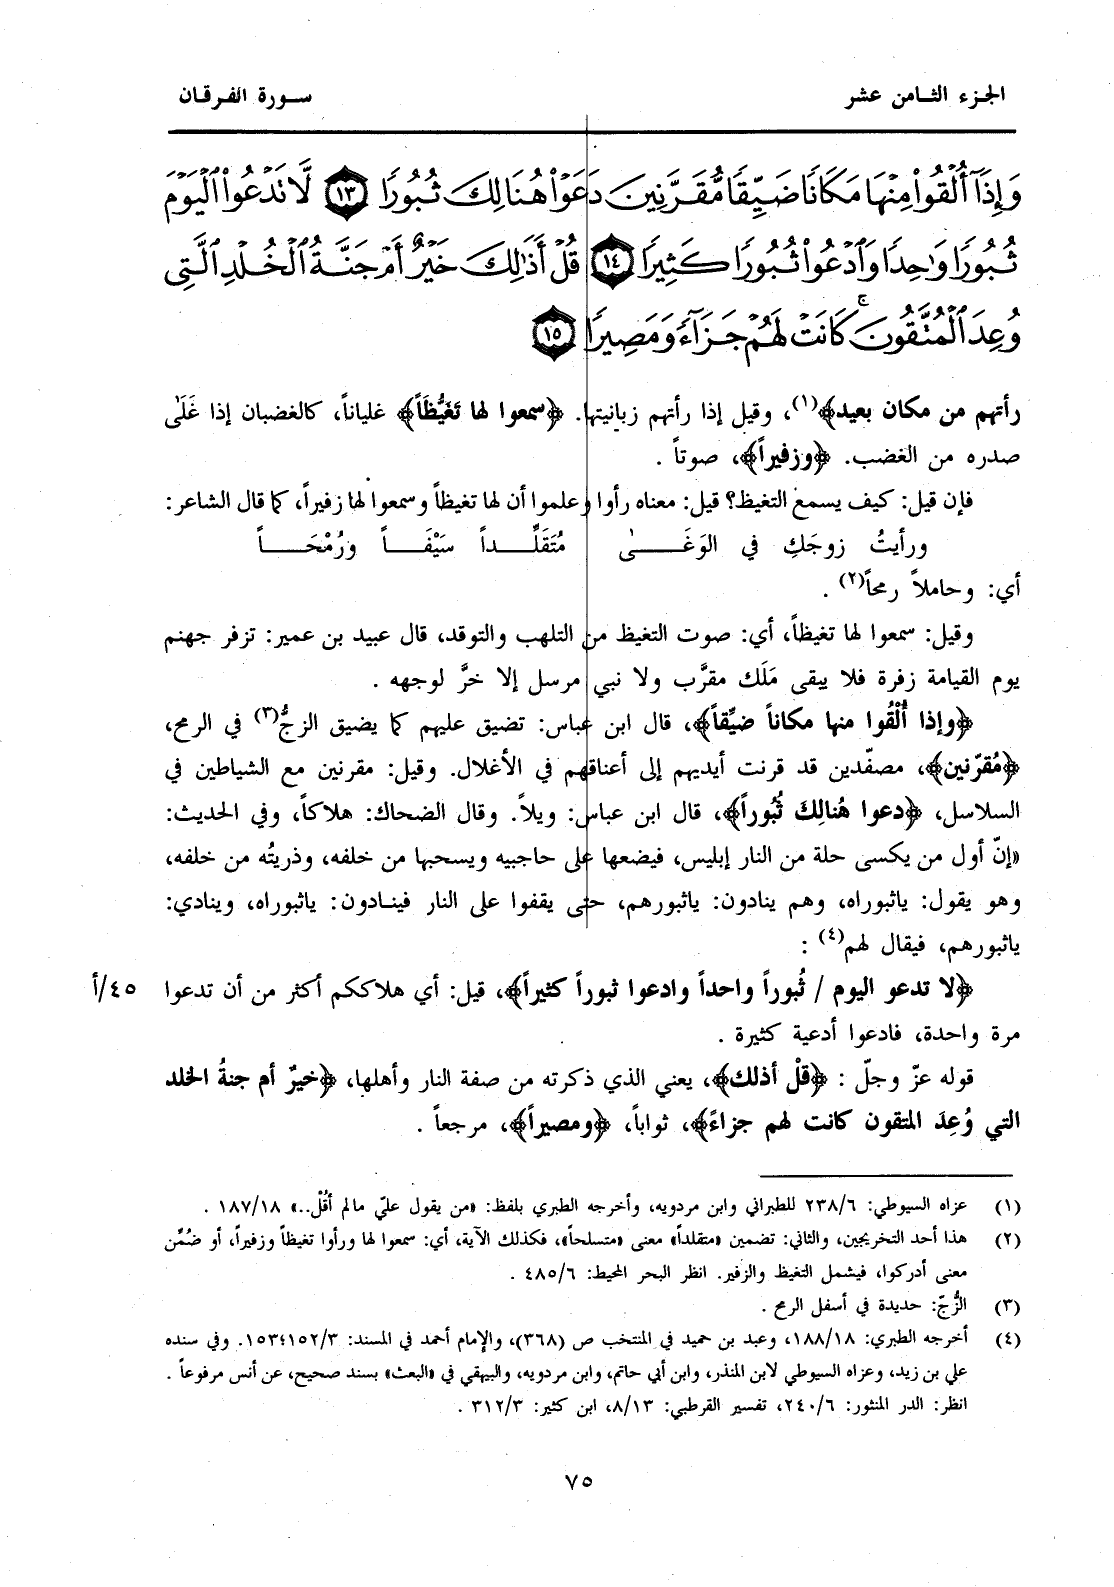 الجزء الثامن عشر
سورة الفرقان
وَإِذَآ أُلْقُوا۟ مِنْهَا مَكَانًا ضَيِّقًا مُّقَرَّنِينَ دَعَوْا۟ هُنَالِكَ ثُبُورًا ١٣ لَّا تَدْعُوا۟ ٱلْيَوْمَ
ثُبُورًا وَٰحِدًا وَٱدْعُوا۟ ثُبُورًا كَثِيرًا ١٤ قُلْ أَذَٰلِكَ خَيْرٌ أَمْ جَنَّةُ ٱلْخُلْدِ ٱلَّتِى
وُعِدَ ٱلْمُتَّقُونَ ۚ كَانَتْ لَهُمْ جَزَآءً وَمَصِيرًا ١٥
رأتهم من مكان بعيد﴾(١)، وقيل إذا رأتهم زبانيتها. ﴿سمعوا لها تَغَيُّظَاً﴾ غلياناً، كالغضبان إذا غَلَىٰ
صدره من الغضب. ﴿وزفيراً﴾، صوتاً .
فإن قيل: كيف يسمع التغيظ؟ قيل: معناه رأوا وعلموا أن لها تغيظاً وسمعوا لها زفيراً، كما قال الشاعر:
ورأيتُ زوجَكِ في الوَغَــىٰ مُتَقَلِّــداً سَيْفَــاً ورُمْحَــاً
أي: وحاملاً رمحاً(٢) .
وقيل: سمعوا لها تغيظاً، أي: صوت التغيظ من التلهب والتوقد، قال عبيد بن عمير: تزفر جهنم
يوم القيامة زفرة فلا يبقى مَلَك مقرَّب ولا نبي مرسل إلا خرَّ لوجهه .
﴿وإذا أُلْقُوا منها مكاناً ضيِّقاً﴾، قال ابن عباس: تضيق عليهم كما يضيق الزجُّ(٣) في الرمح،
﴿مُقرّنين﴾، مصفّدين قد قرنت أيديهم إلى أعناقهم في الأغلال. وقيل: مقرنين مع الشياطين في
السلاسل، ﴿دعوا هُنالِكَ ثُبُوراً﴾، قال ابن عباس: ويلاً. وقال الضحاك: هلاكاً، وفي الحديث:
«إنّ أول من يكسى حلة من النار إبليس، فيضعها على حاجبيه ويسحبها من خلفه، وذريتُه من خلفه،
وهو يقول: ياثبوراه، وهم ينادون: ياثبورهم، حتى يقفوا على النار فينادون: ياثبوراه، وينادي:
ياثبورهم، فيقال لهم(٤) :
﴿لا تدعو اليوم / ثُبوراً واحداً وادعوا ثبوراً كثيراً﴾، قيل: أي هلاككم أكثر من أن تدعوا ٤٥/أ
مرة واحدة، فادعوا أدعية كثيرة .
قوله عزّ وجلّ : ﴿قلْ أذلك﴾، يعني الذي ذكرته من صفة النار وأهلها، ﴿خيرٌ أم جنةُ الخلد
التي وُعِدَ المتقون كانت لهم جزاءً﴾، ثواباً، ﴿ومصيراً﴾، مرجعاً .
(١) عزاه السيوطي: ٢٣٨/٦ للطبراني وابن مردويه، وأخرجه الطبري بلفظ: «من يقول عليّ مالم أقُلْ..» ١٨٧/١٨ .
(٢) هذا أحد التخريجين، والثاني: تضمين «متقلداً» معنى «متسلحاً»، فكذلك الآية، أي: سمعوا لها ورأوا تغيظاً وزفيراً، أو ضُمِّن
معنى أدركوا، فيشمل التغيظ والزفير. انظر البحر المحيط: ٤٨٥/٦ .
(٣) الزُّجّ: حديدة في أسفل الرمح .
(٤) أخرجه الطبري: ١٨٨/١٨، وعبد بن حميد في المنتخب ص (٣٦٨)، والإمام أحمد في المسند: ١٥٣٤١٥٢/٣. وفي سنده
علي بن زيد، وعزاه السيوطي لابن المنذر، وابن أبي حاتم، وابن مردويه، والبيهقي في «البعث» بسند صحيح، عن أنس مرفوعاً .
انظر: الدر المنثور: ٢٤٠/٦، تفسير القرطبي: ٨/١٣، ابن كثير: ٣١٢/٣ .
٧٥